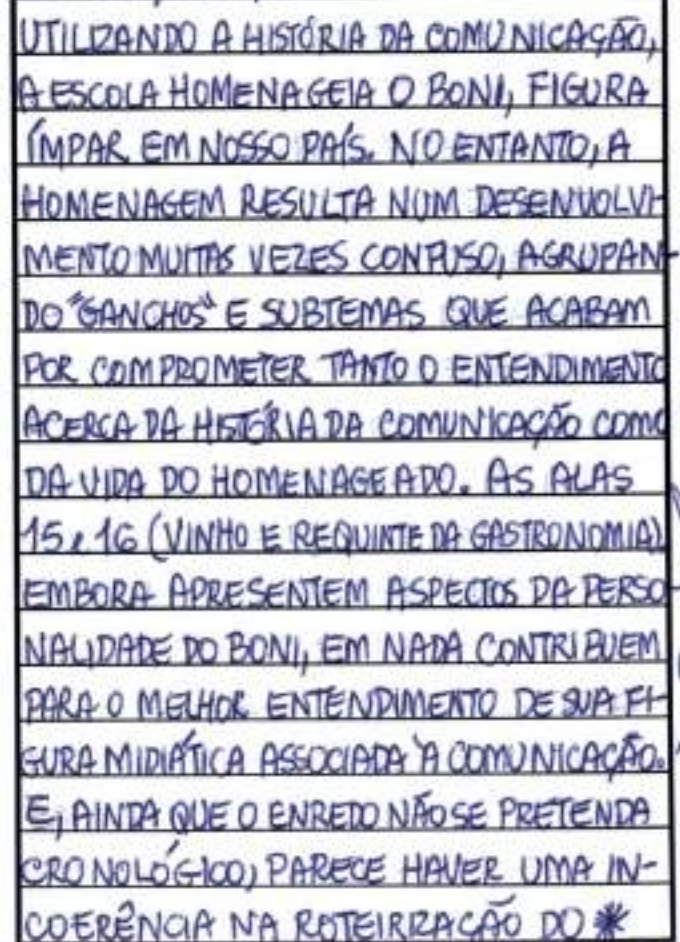 UTILIZANDO A HISTÓRIA DA COMUNICAÇÃO,
A ESCOLA HOMENAGEIA O BONI, FIGURA
ÍMPAR EM NOSSO PAÍS. NO ENTANTO, A
HOMENAGEM RESULTA NUM DESENVOLVI-
MENTO MUITAS VEZES CONFUSO, AGRUPAN-
DO "GANCHOS" E SUBTEMAS QUE ACABAM
POR COMPROMETER TANTO O ENTENDIMENTO
ACERCA DA HISTÓRIA DA COMUNICAÇÃO COMO
DA VIDA DO HOMENAGEADO. AS ALAS
15 e 16 (VINHO E REQUINTE DA GASTRONOMIA),
EMBORA APRESENTEM ASPECTOS DA PERSO-
NALIDADE DO BONI, EM NADA CONTRIBUEM
PARA O MELHOR ENTENDIMENTO DE SUA FI-
GURA MIDIÁTICA ASSOCIADA À COMUNICAÇÃO.
E, AINDA QUE O ENREDO NÃO SE PRETENDA
CRONOLÓGICO, PARECE HAVER UMA IN-
COERÊNCIA NA ROTEIRIZAÇÃO DO *